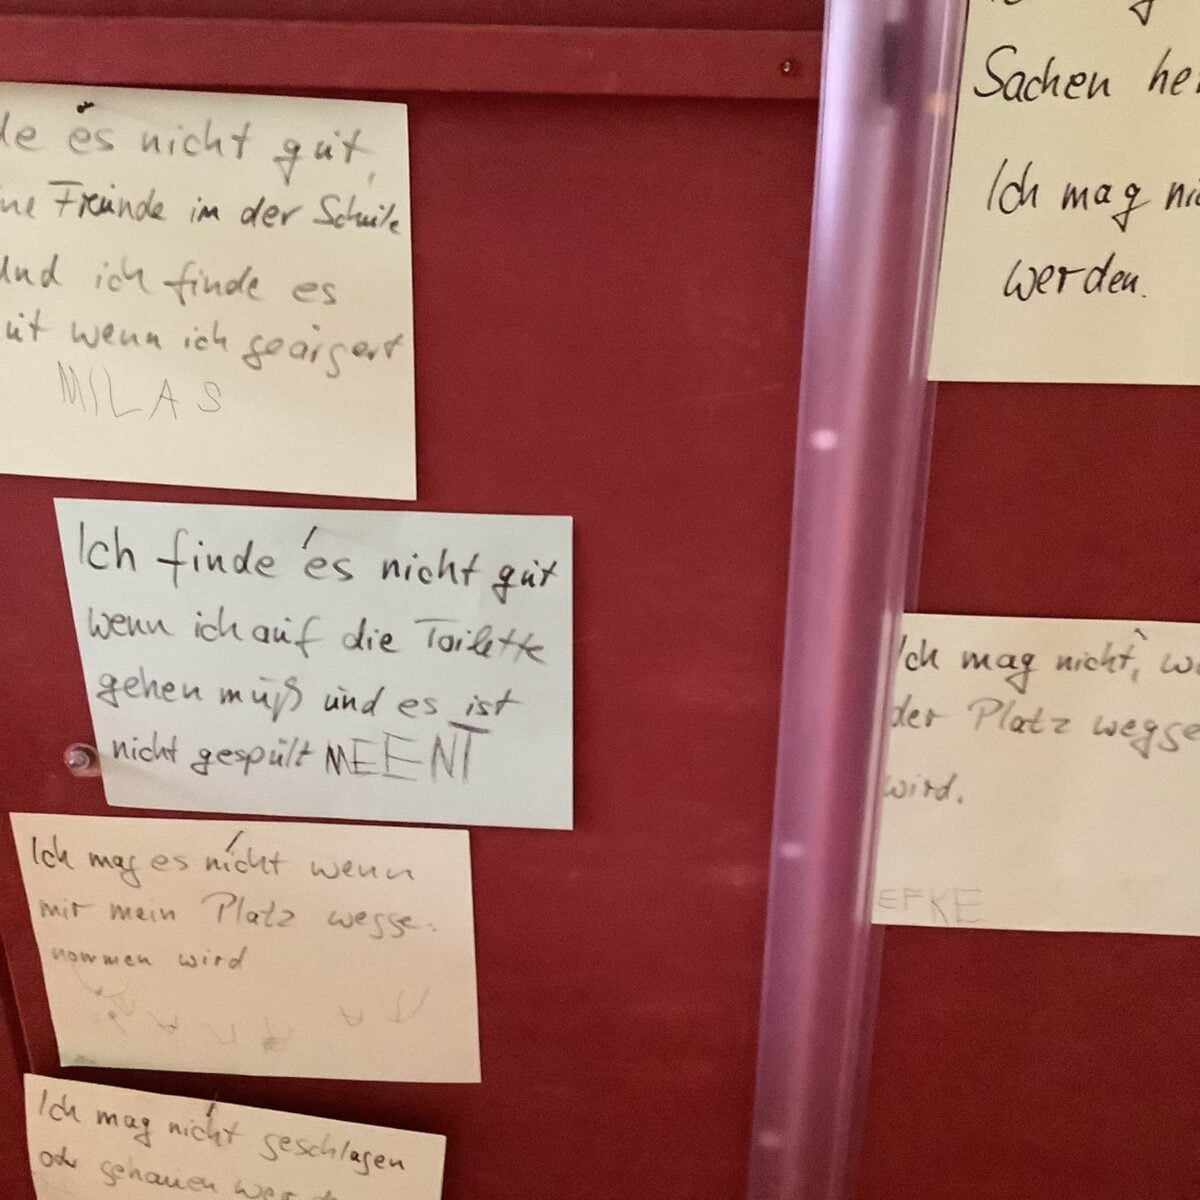 es nicht gut,
Freunde in der Schule
Und ich finde es
wenn ich geärgert
MILAS
Ich finde es nicht gut
wenn ich auf die Toilette
gehen muß und es ist
nicht gespült MEENT
Ich mag es nicht wenn
mir mein Platz wegge-
nommen wird
Ich mag nicht geschlagen
oder gehauen
Sachen
Ich mag
werden.
Ich mag nicht,
der Platz
wird.
EFKE